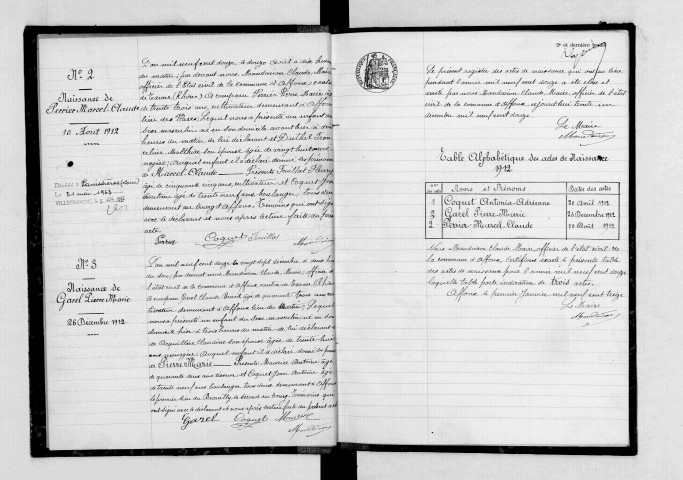 N° 2
Naissance de
Perrier Marcel Claude
10 Août 1912
L'an mil neuf cent douze, le douze Août à dix heures
du matin; par devant nous, Mondamion Claude, Maire
officier de l'état civil de la commune d'Affoux, canton
de Tarare (Rhône) a comparu Perrier Pierre Marie âgé
de trente trois ans, cultivateur demeurant à Affoux
lieu des Places, lequel nous a présenté un enfant du
sexe masculin né en son domicile, avant hier à
heures du matin de lui déclarant et
Mathilde son épouse âgée de vingt huit ans
auquel enfant il a déclaré donner les prénoms
de Marcel Claude Présents
âgé de cinquante cinq ans, cultivateur et Coquet Jean
Antoine âgé de trente neuf ans, boulanger, tous deux
demeurant au bourg d'Affoux. Témoins qui ont signé
avec le déclarant et nous après lecture faite du présent
acte.
Coquet
Décédé à
le 21 mars 1963
VILLEFRANCHE, le
N° 3
Naissance de
Garel Pierre Marie
26 Décembre 1912
L'an mil neuf cent douze le vingt sept décembre à deux heures
du soir, par devant nous Mondamion Claude, Maire, officier de
l'état civil de la commune d'Affoux canton de Tarare (Rhône)
a comparu Garel Claude Benoit âgé de quarante trois ans
demeurant à Affoux lieu du Lequel
nous a présenté un enfant du sexe masculin, né en son
domicile hier à trois heures du matin de lui déclarant et
de Claudine son épouse âgée de trente huit
ans auquel enfant il a déclaré donner les prénoms
de Pierre Marie Présents Maurice Antoine âgé
de quarante deux ans et Coquet Jean Antoine âgé
de trente neuf ans boulanger tous deux demeurant à Affoux
le premier lieu du le second au bourg. Témoins qui
ont signé avec le déclarant et nous après lecture faite du présent acte
Garel Coquet Maurice
2e et dernière feuille
Le présent registre des actes de naissance qui ont eu lieu
pendant l'année mil neuf cent douze a été clos et
arrêté par nous Mondamion Claude, Maire, officier de l'état
civil de la commune d'Affoux, aujourd'hui trente un
décembre mil neuf cent douze.
Le Maire
Table Alphabétique des actes de Naissance
1912
Noms et Prénoms Dates des actes
1 Coquet Antonia Adrienne 20 Avril 1912
3 Garel Pierre Marie 26 Décembre 1912
2 Perrier Marcel Claude 10 Août 1912
Nous Mondamion Claude Maire, officier de l'état civil de
la commune d'Affoux, certifions exacte la présente table
des actes de naissance pour l'année mil neuf cent douze
laquelle table porte indication de trois actes.
Affoux le premier Janvier mil neuf cent treize
Le Maire